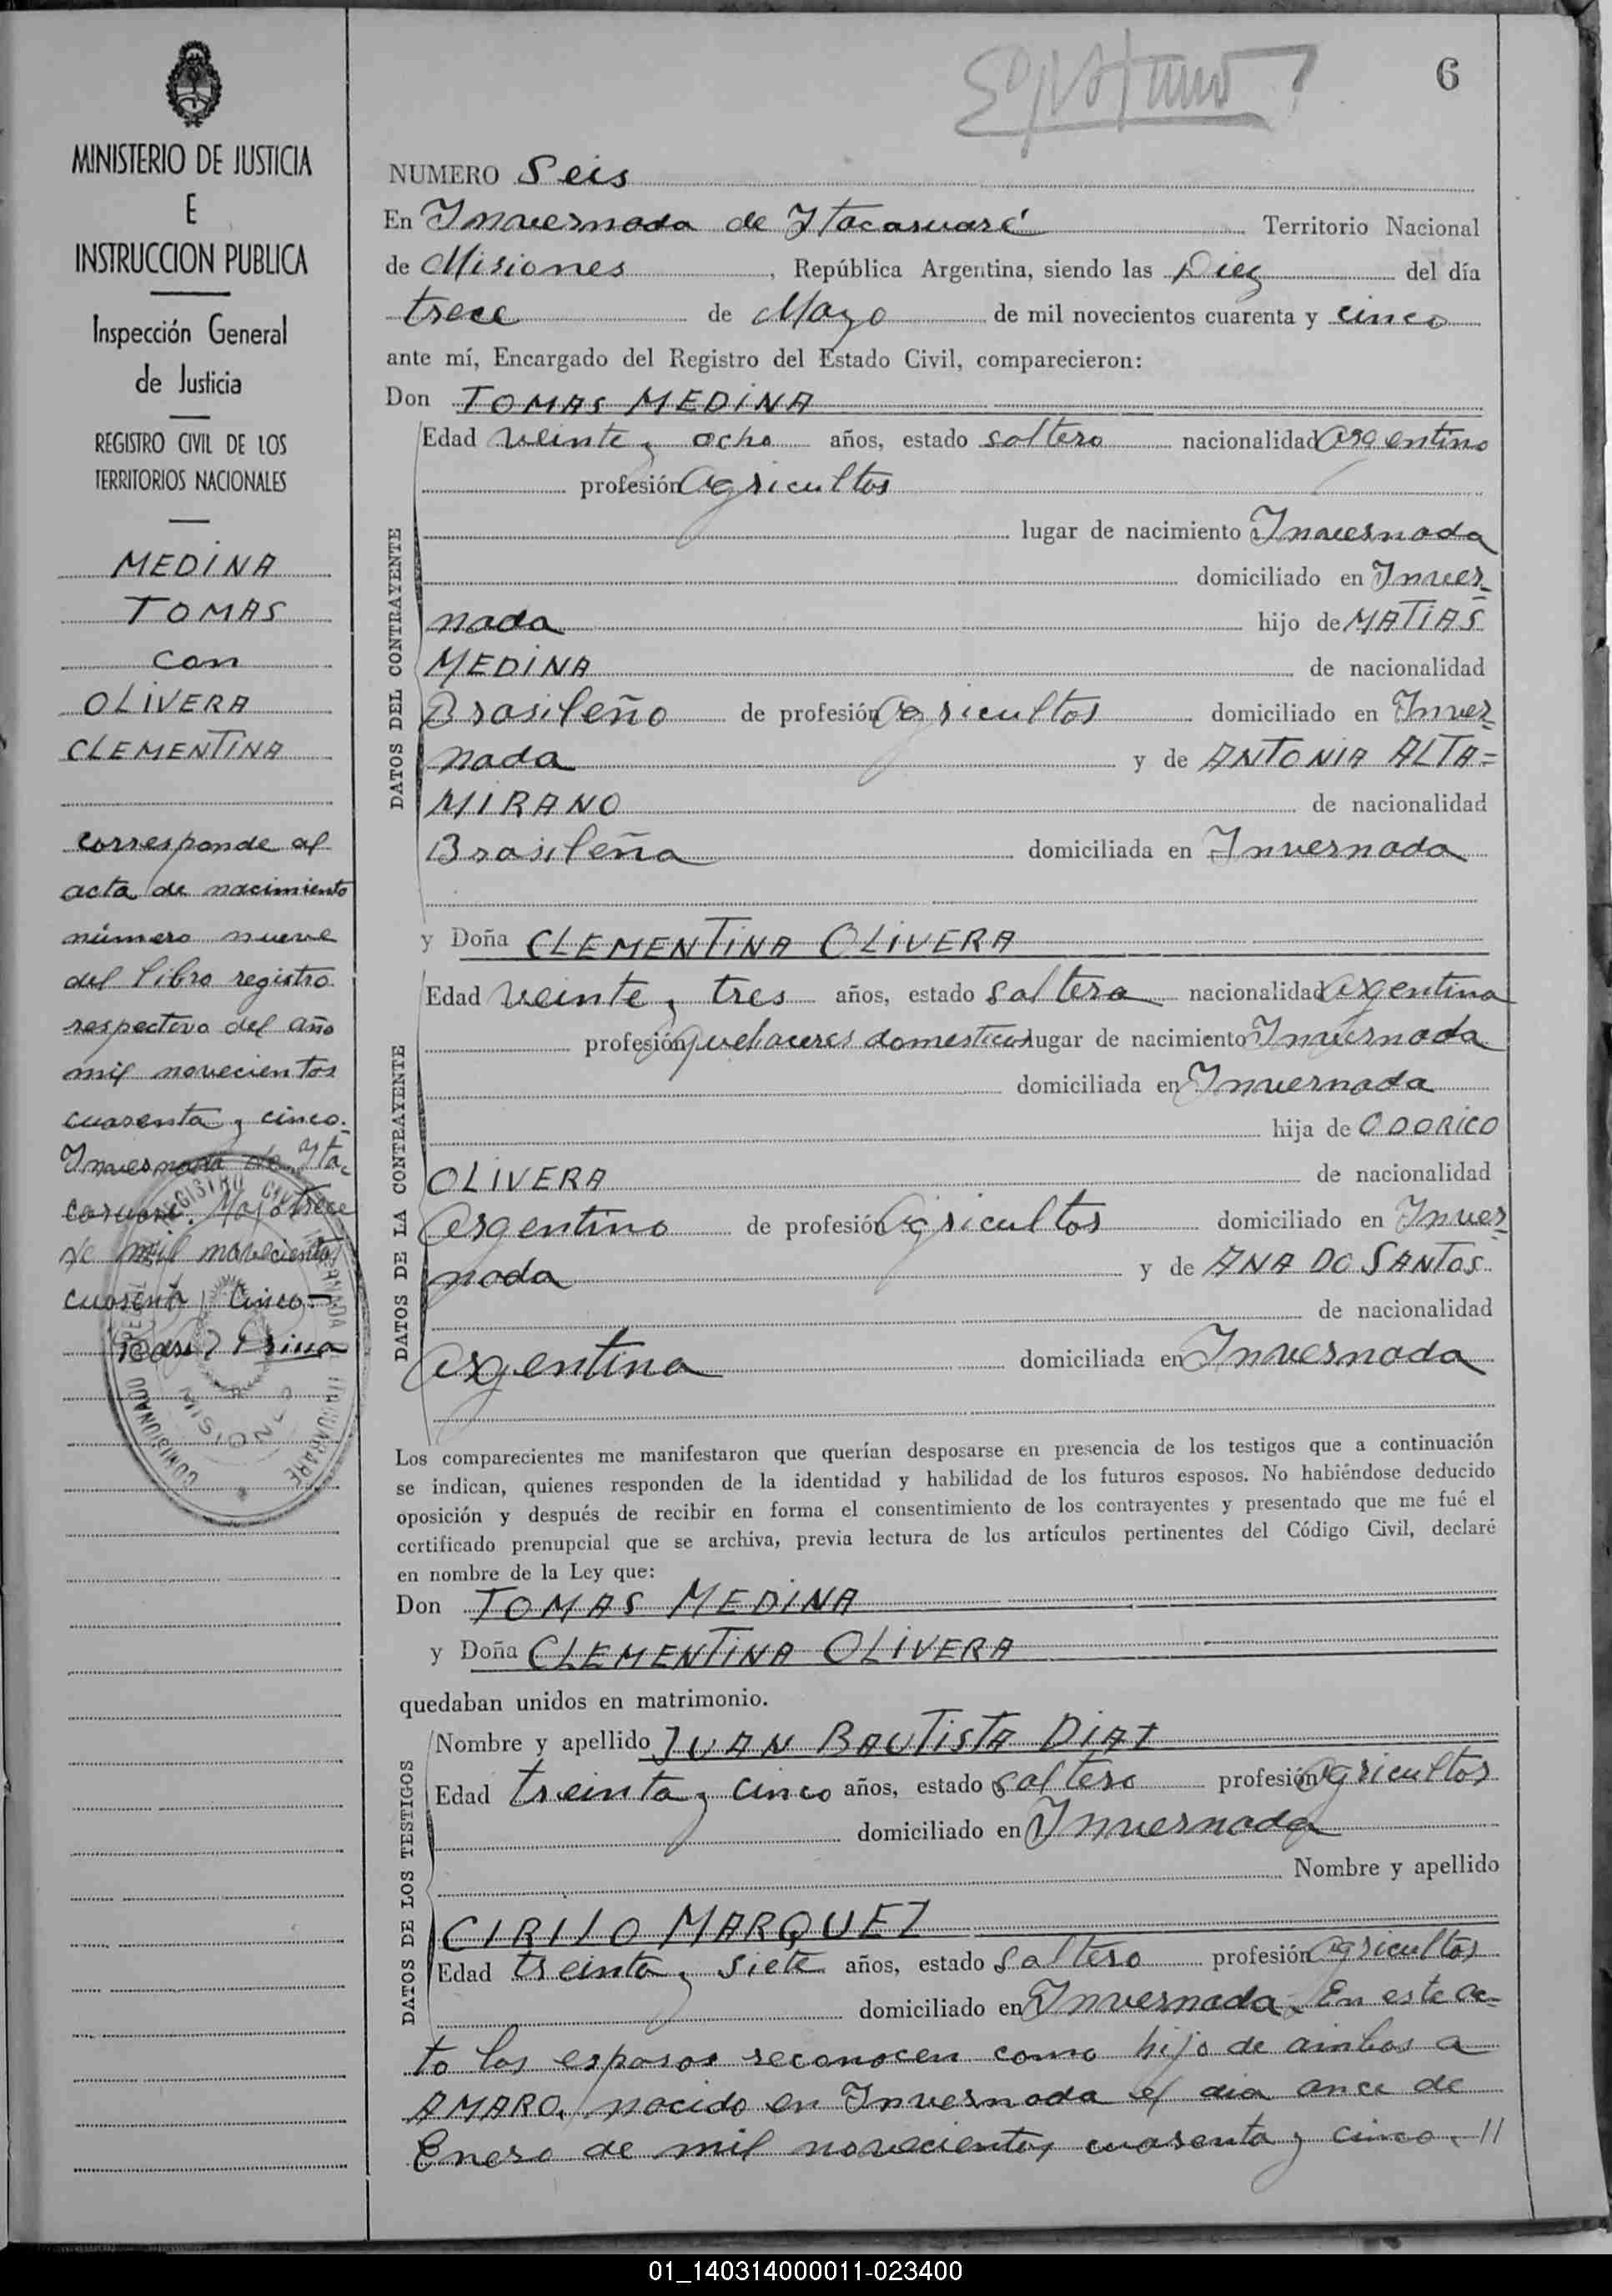 6
MINISTERIO DE JUSTICIA
E
INSTRUCCION PUBLICA
Inspección General
de Justicia
REGISTRO CIVIL DE LOS
TERRITORIOS NACIONALES
MEDINA
TOMAS
con
OLIVERA
CLEMENTINA
corresponde al
acta de nacimiento
número nueve
del libro registro
respectivo del año
mil novecientos
cuarenta y cinco.
Invernada de Ita-
caruaré. Mayo trece
de mil novecientos
cuarenta y cinco.-
NUMERO Seis
En Invernada de Itacaruaré Territorio Nacional
de Misiones, República Argentina, siendo las Diez del día
trece de Mayo de mil novecientos cuarenta y cinco
ante mí, Encargado del Registro del Estado Civil, comparecieron:
Don TOMAS MEDINA
DATOS DEL CONTRAYENTE
Edad veinte y ocho años, estado soltero nacionalidad argentino
profesión agricultor
lugar de nacimiento Invernada
domiciliado en Inver=
nada hijo de MATIAS
MEDINA de nacionalidad
Brasileño de profesión agricultor domiciliado en Inver=
nada y de ANTONIA ALTA=
MIRANO de nacionalidad
Brasileña domiciliada en Invernada
y Doña CLEMENTINA OLIVERA
DATOS DE LA CONTRAYENTE
Edad veinte y tres años, estado soltera nacionalidad argentina
profesión quehaceres domesticos lugar de nacimiento Invernada
domiciliada en Invernada
hija de ODORICO
OLIVERA de nacionalidad
argentino de profesión agricultor domiciliado en Inver=
nada y de ANA DO SANTOS
de nacionalidad
argentina domiciliada en Invernada
Los comparecientes me manifestaron que querían desposarse en presencia de los testigos que a continuación
se indican, quienes responden de la identidad y habilidad de los futuros esposos. No habiéndose deducido
oposición y después de recibir en forma el consentimiento de los contrayentes y presentado que me fué el
certificado prenupcial que se archiva, previa lectura de los artículos pertinentes del Código Civil, declaré
en nombre de la Ley que:
Don TOMAS MEDINA
y Doña CLEMENTINA OLIVERA
quedaban unidos en matrimonio.
DATOS DE LOS TESTIGOS
Nombre y apellido JUAN BAUTISTA DIAZ
Edad treinta y cinco años, estado soltero profesión agricultor
domiciliado en Invernada
Nombre y apellido
CIRILO MARQUEZ
Edad treinta y siete años, estado soltero profesión agricultor
domiciliado en Invernada. En este ac=
to los esposos reconocen como hijo de ambos a
AMARO, nacido en Invernada el dia once de
Enero de mil novecientos cuarenta y cinco. //
01_140314000011-023400